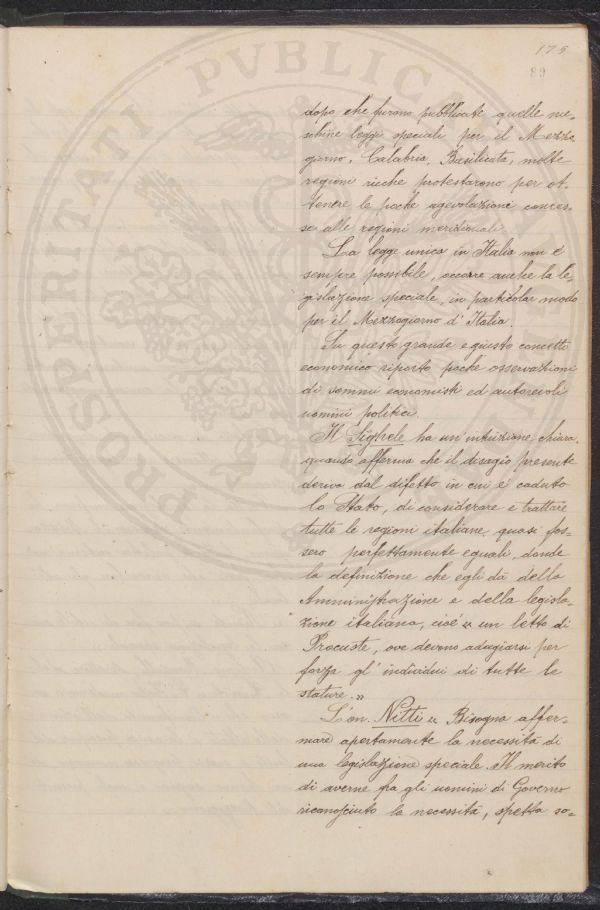 175
89
dopo che furono pubblicate quelle me-
schine leggi speciali per il Mezzo
giorno, Calabria, Basilicata, molte
regioni ricche protestarono per ot-
tenere le poche agevolazioni conces-
se alle regioni meridionali.
La legge unica in Italia non è
sempre possibile, occorre anche la le-
gislazione speciale, in particolar modo
per il Mezzogiorno d'Italia.
Su questo grande e giusto concetto
economico riporto poche osservazioni
di sommi economisti ed autorevoli
uomini politici.
Il Sighele ha un'intuizione chiara,
quando afferma che il disagio presente
deriva dal difetto in cui è caduto
lo Stato, di considerare e trattare
tutte le regioni italiane, quasi fos-
sero perfettamente eguali, donde
la definizione che egli dà della
Amministrazione e della legisla-
zione italiana, cioè « un letto di
Procuste, ove devono adagiarsi per
forza gl'individui di tutte le
stature. »
L'on. Nitti « Bisogna affer-
mare apertamente la necessità di
una legislazione speciale. Il merito
di averne fra gli uomini di Governo
riconosciuto la necessità, spetta so-
PROSPERITATI PVBLICAE